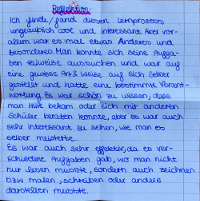 Reflektion
Ich finde/fand diesen Lernprozess
unglaublich cool und interessant. Aber vor
allem war es mal etwas Anderes und
besonderes. Man konnte sich seine Aufga-
ben teilweise aussuchen und war auf
eine gewisse Art & Weise auf sich selber
gestellt und hatte eine bestimmte Verant-
wortung. Es war schön zu wissen, dass
man Hilfe bekam oder sich mit anderen
Schüler beraten konnte, aber es war auch
sehr interessant zu sehen, wie man es
selber meisterte.
Es war auch sehr effektiv, da es ver-
schiedene Aufgaben gab, wo man nicht
nur lesen musste, sondern auch zeichnen
bzw. malen, schreiben oder anders
darstellen musste.